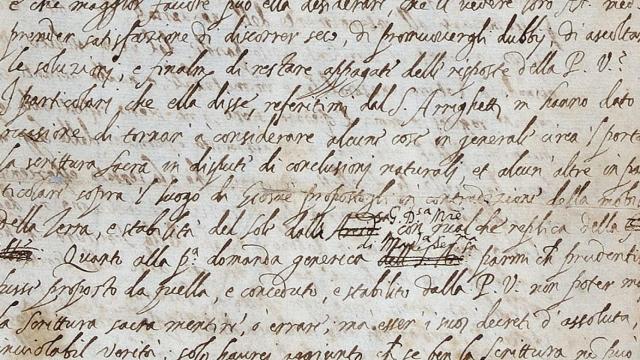 e che maggior favore può ella desiderare, che il vedere loro
prender satisfazione di discorrer seco, di promuovergli dubbij, di ascoltar
le soluzioni, e finalm. di restare appagati delle risposte della P. V.?
I particolari che ella disse referitimi dal S. Arrighetti m hanno dato
casione di tornar à considerare alcune cose in generale circa 'l portar
la scrittura sacra in dispute di conclusioni naturali, et alcun'altre in par
ticolari sopra 'l luogo di Giosue propostogli in contradizione della mobil
G. D.sa M.re
della Terra, e stabilità del Sole dalla con qualche replica della
di M.ma Ser.ma
Quanto alla p.a domanda generica parmi ch prudentis
fusse proposto da quella, e conceduto, e stabilito dalla P. V: non poter mai
la Scrittura sacra mentire, ò errare, ma esser i suoi decreti d'assoluta,
inviolabil verità: solo haurei aggiunto ch se ben la Scrittura